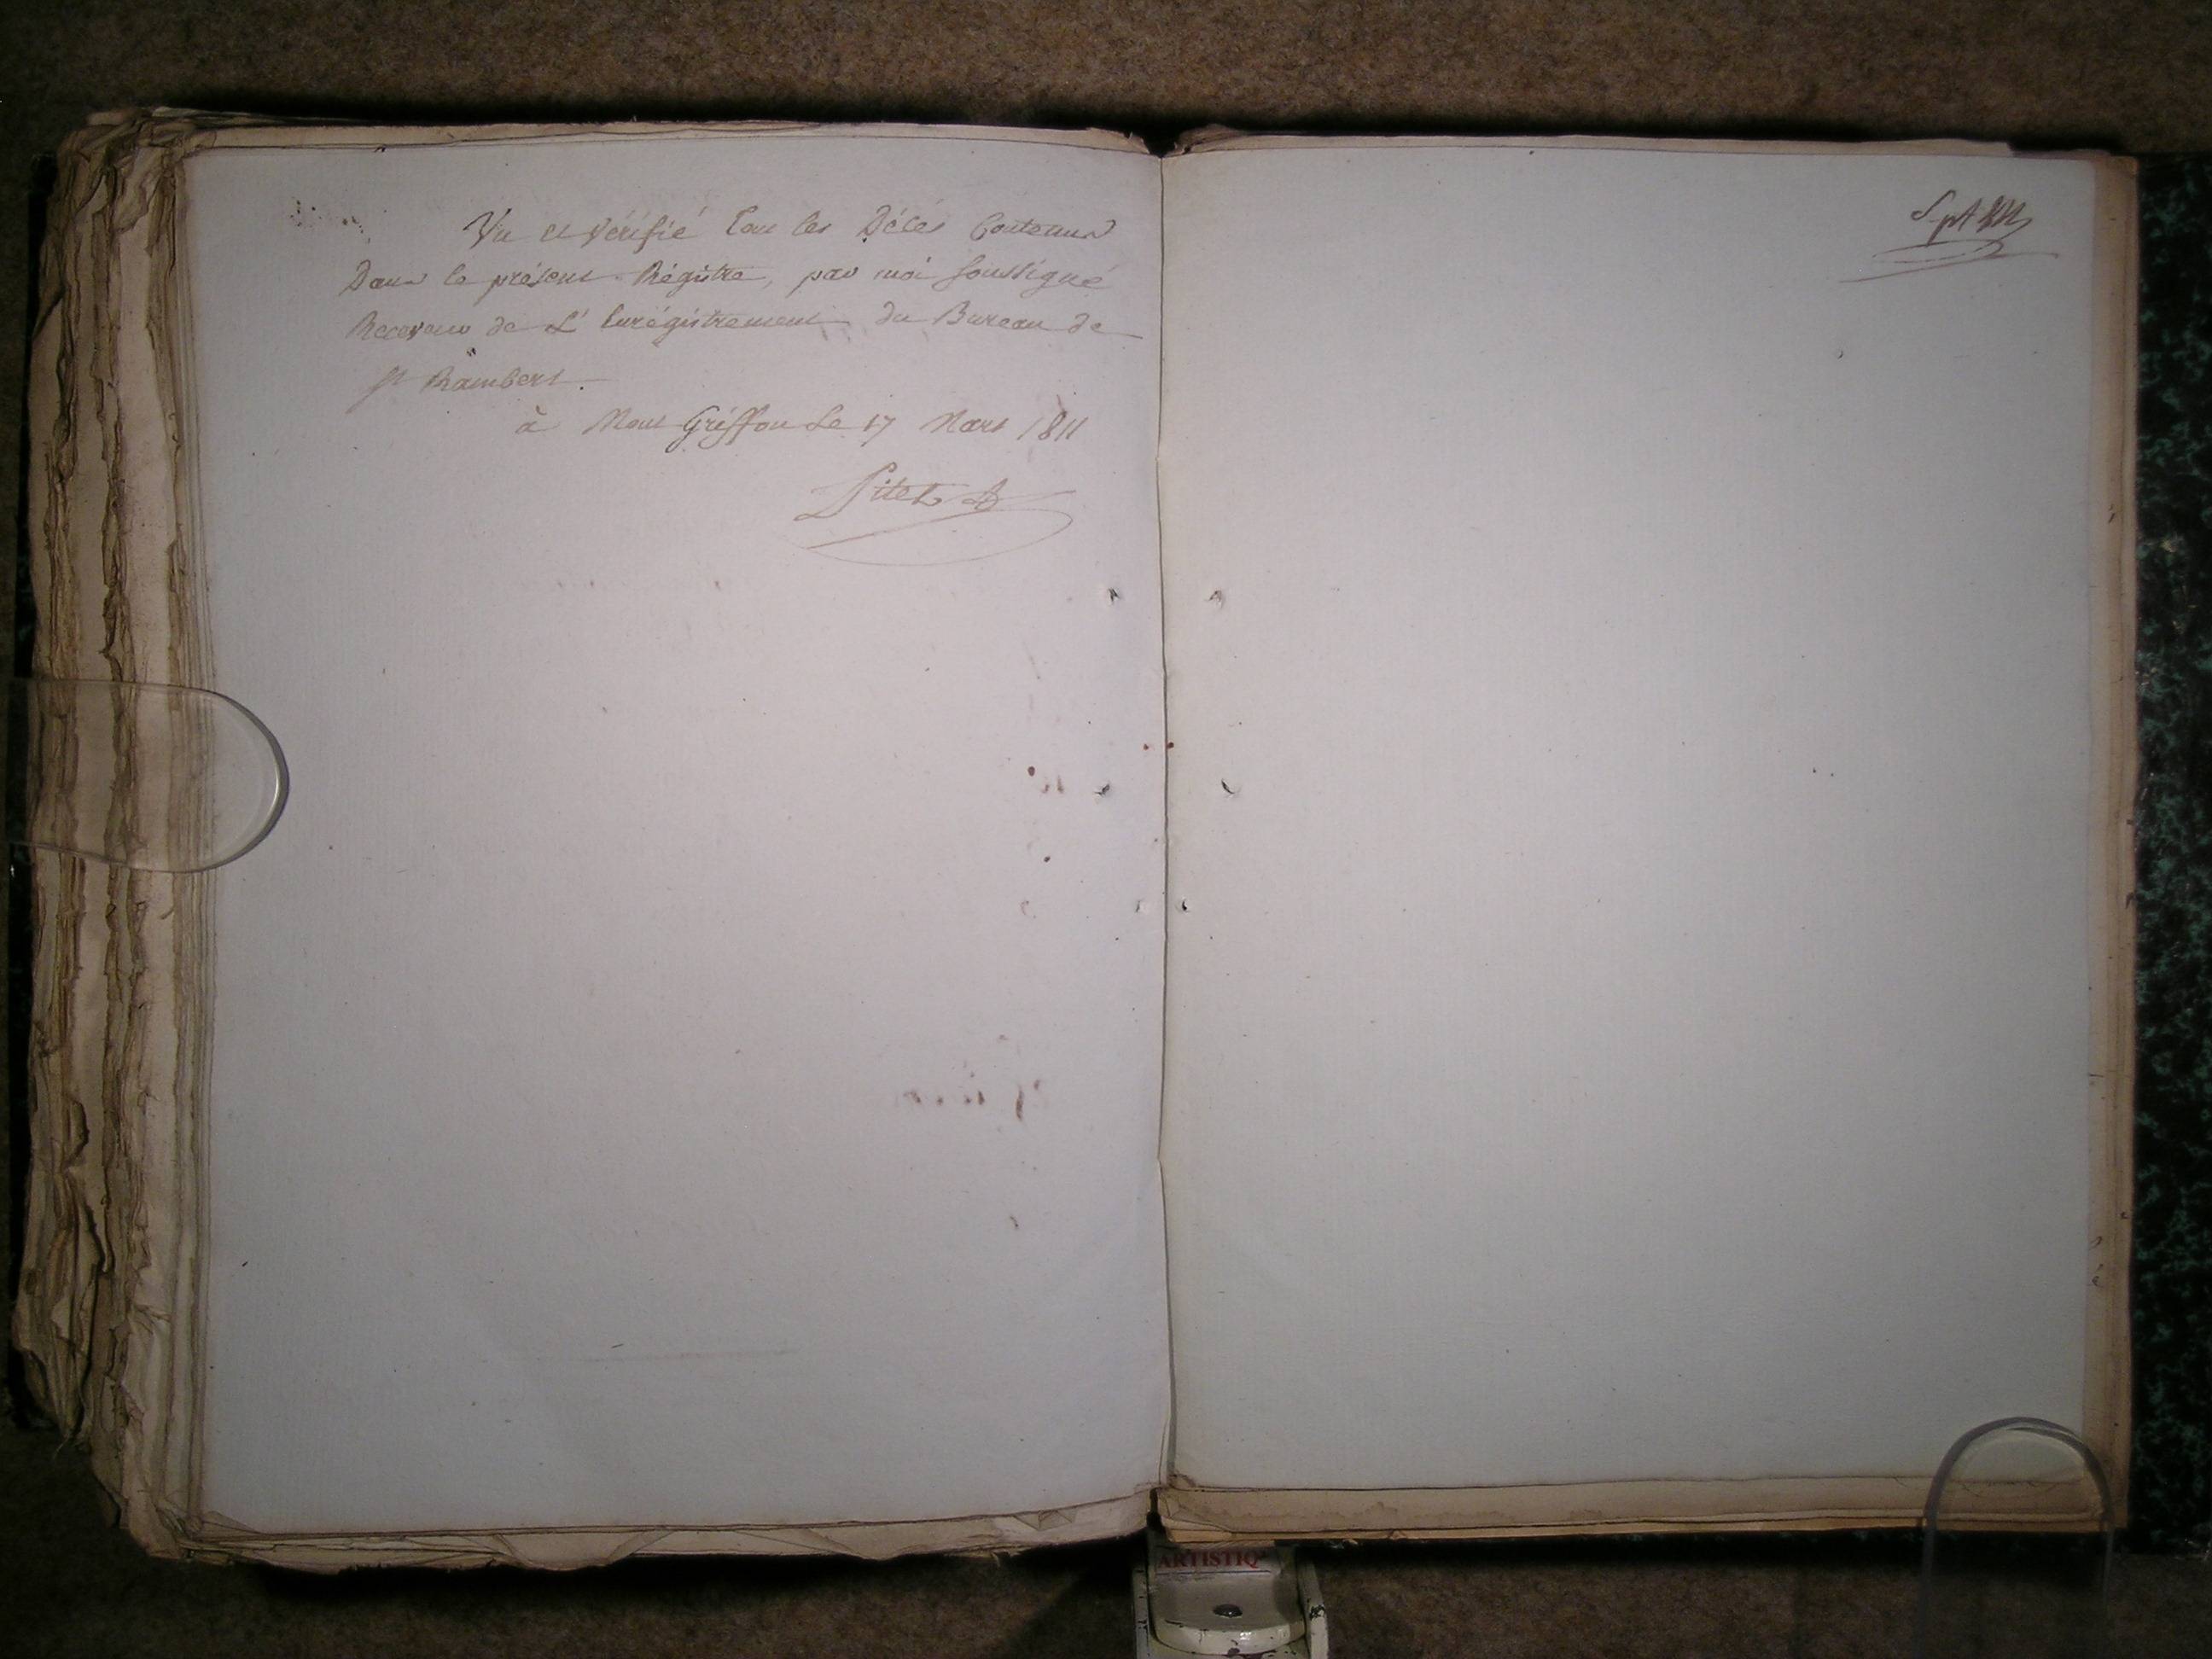 Vu et vérifié tous les Décés Contenus
Dans le présent Régistre, par moi soussigné
Receveur de L'Enrégistrement du Bureau de
St Rambert.
à Mont Griffon Le 17 Mars 1811
Sept
ARTISTIQ